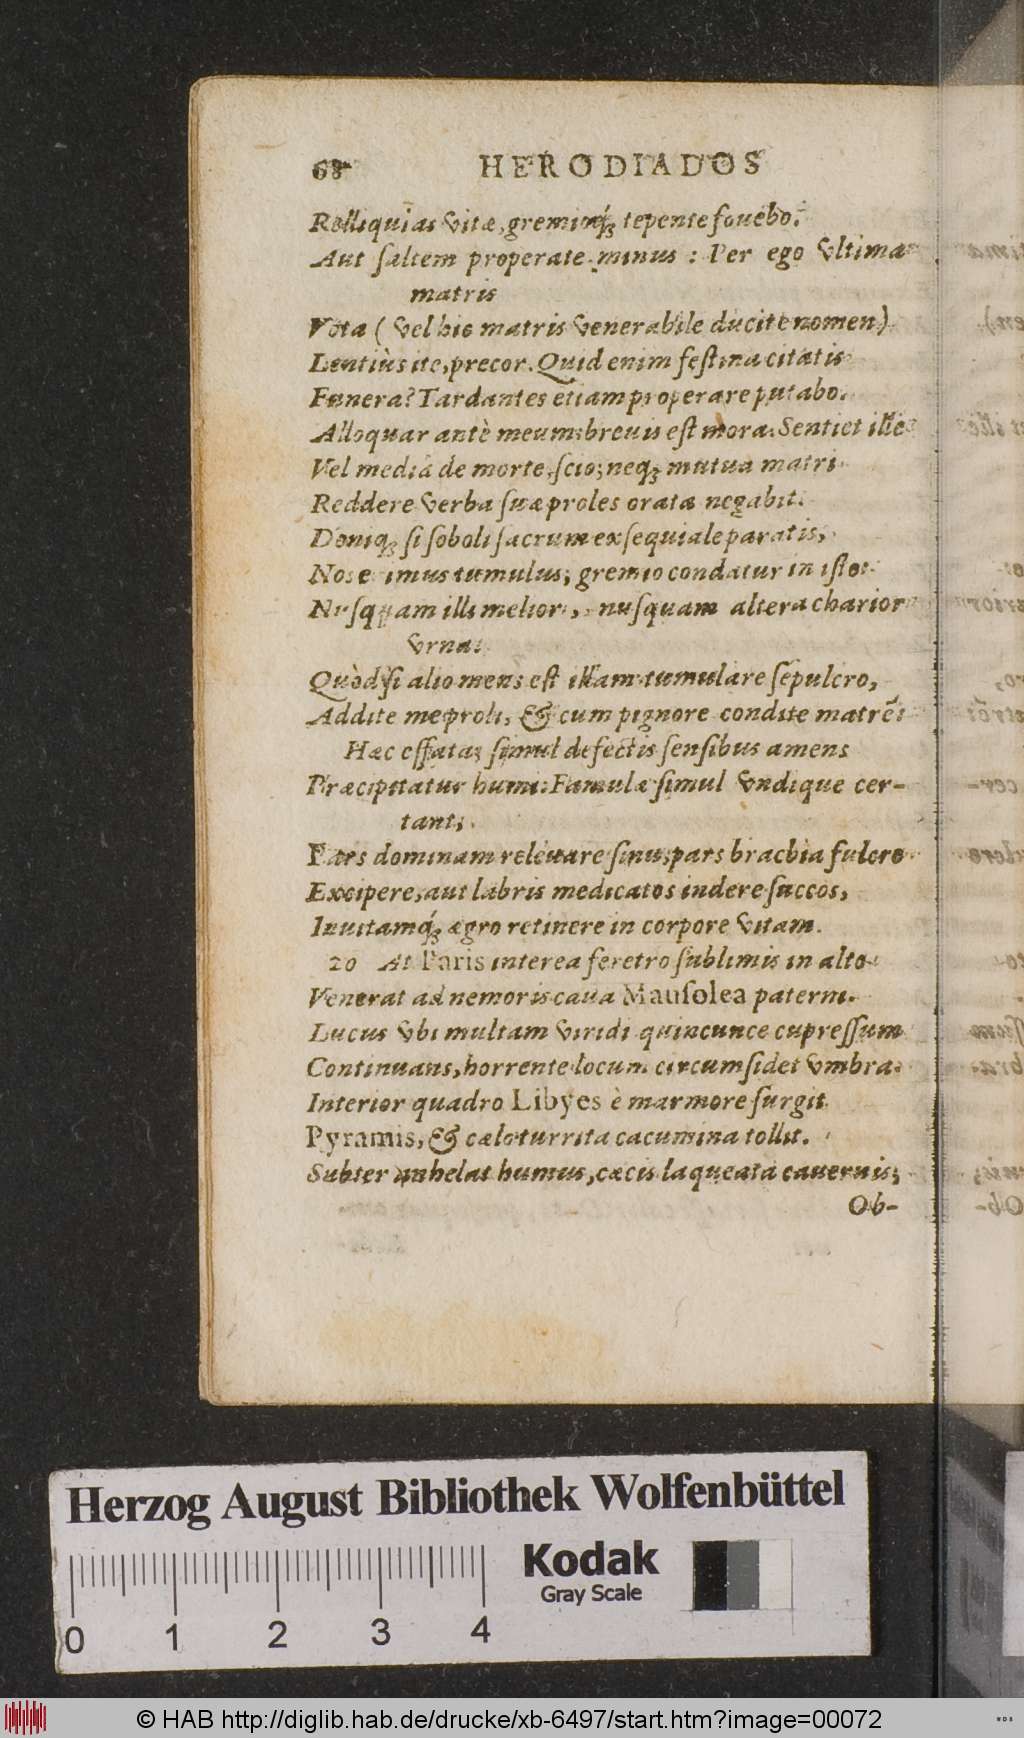 68 HERODIADOS
Relliquias vitæ, gremioq́; tepente fouebo.
Aut saltem properate minus : Per ego vltima
matris
Vota ( vel hic matris venerabile ducite nomen)
Lentiùs ite, precor. Quid enim festina citatis
Funera? Tardantes etiam properare putabo.
Alloquar antè meum: breuis est mora: Sentiet ille
Vel mediâ de morte, scio; neq; mutua matri
Reddere verba suæ proles orata negabit.
Deniq; si soboli sacrum exsequiale paratis,
Nos erimus tumulus; gremio condatur in isto:
Nusquam illi melior, nusquam altera charior
vrna:
Quòd si alio mens est illam tumulare sepulcro,
Addite me proli, & cum pignore condite matrē!
Hæc effata; simul defectis sensibus amens
Præcipitatur humi: Famulæ simul vndique cer-
tant;
Pars dominam releuare sinu; pars brachia fulcro
Excipere, aut labris medicatos indere succos,
Inuitamq́; ægro retinere in corpore vitam.
20 At Paris interea feretro sublimis in alto
Venerat ad nemoris caua Mausolea paterni.
Lucus vbi multam viridi quincunce cupressum
Continuans, horrente locum circumsidet vmbra.
Interior quadro Libyes è marmore surgit
Pyramis, & cælo turrita cacumina tollit.
Subter anhelat humus, cæcis laqueata cauernis;
Ob-
Herzog August Bibliothek Wolfenbüttel
Kodak
Gray Scale
0 1 2 3 4
© HAB http://diglib.hab.de/drucke/xb-6497/start.htm?image=00072